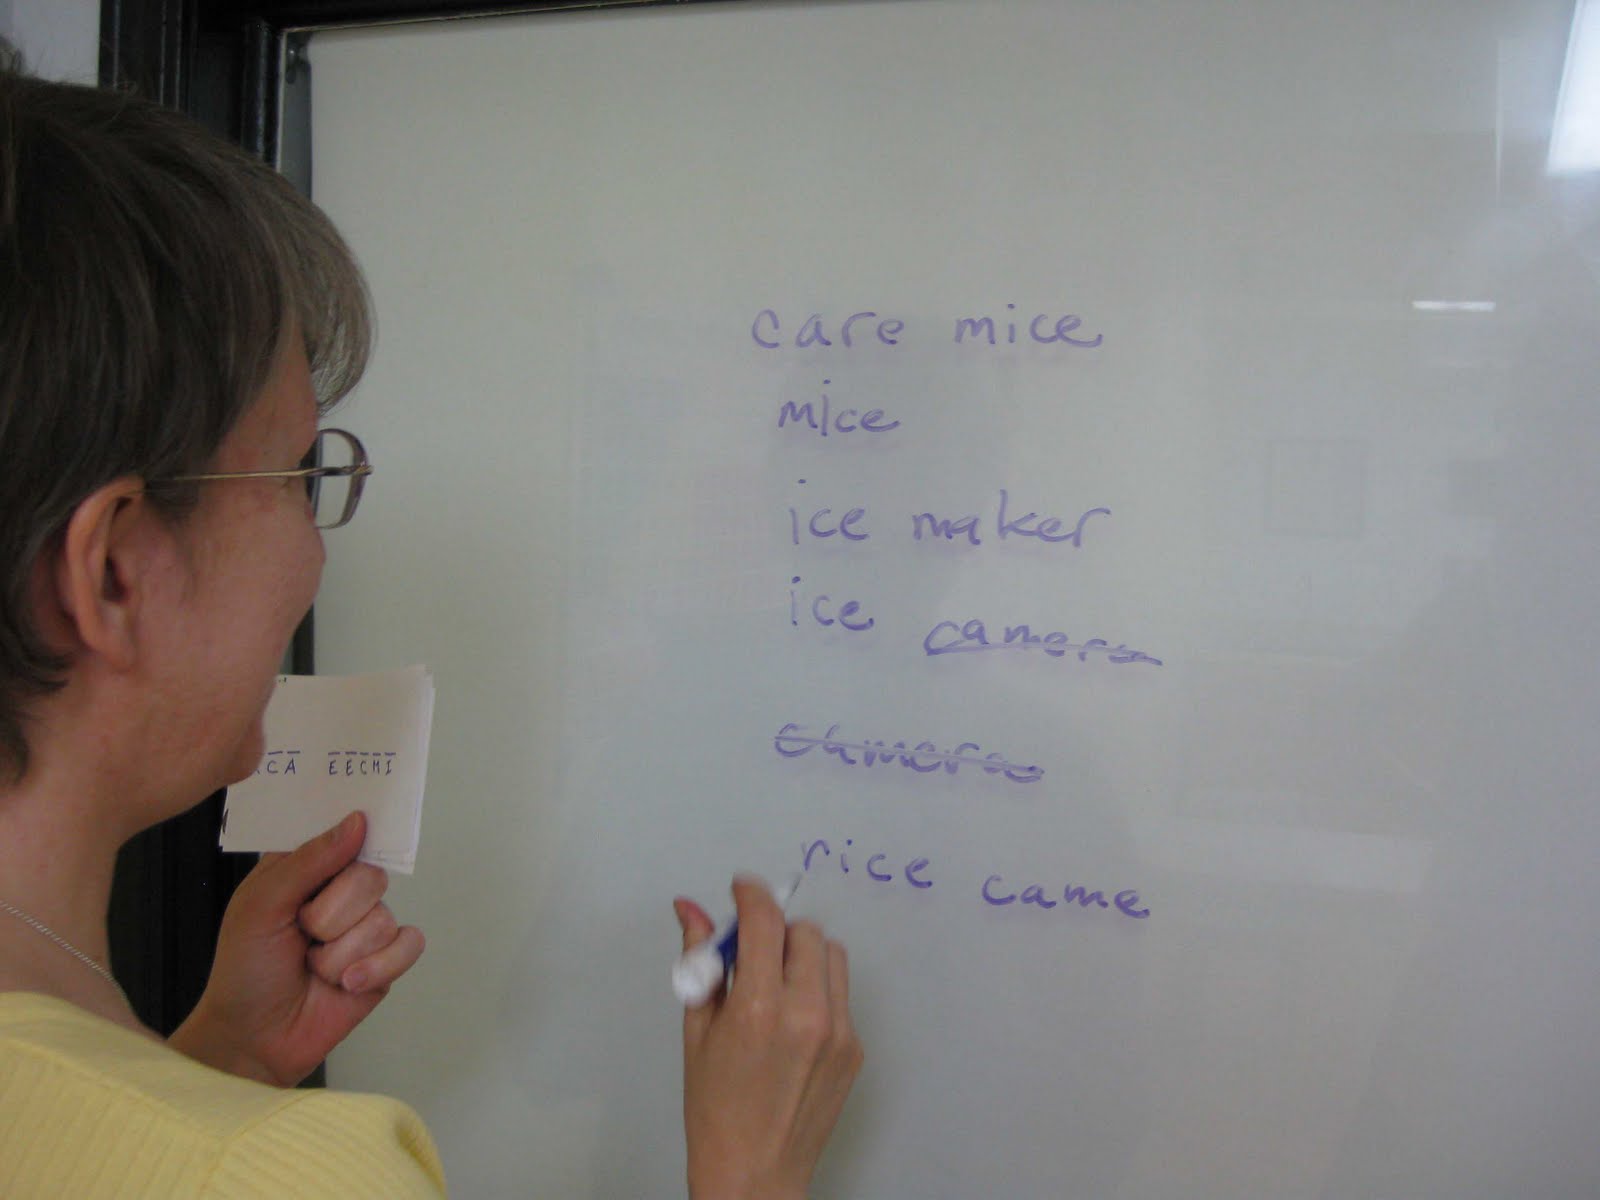 care mice
mice
ice maker
ice camera
camera
rice came
CA EECMI